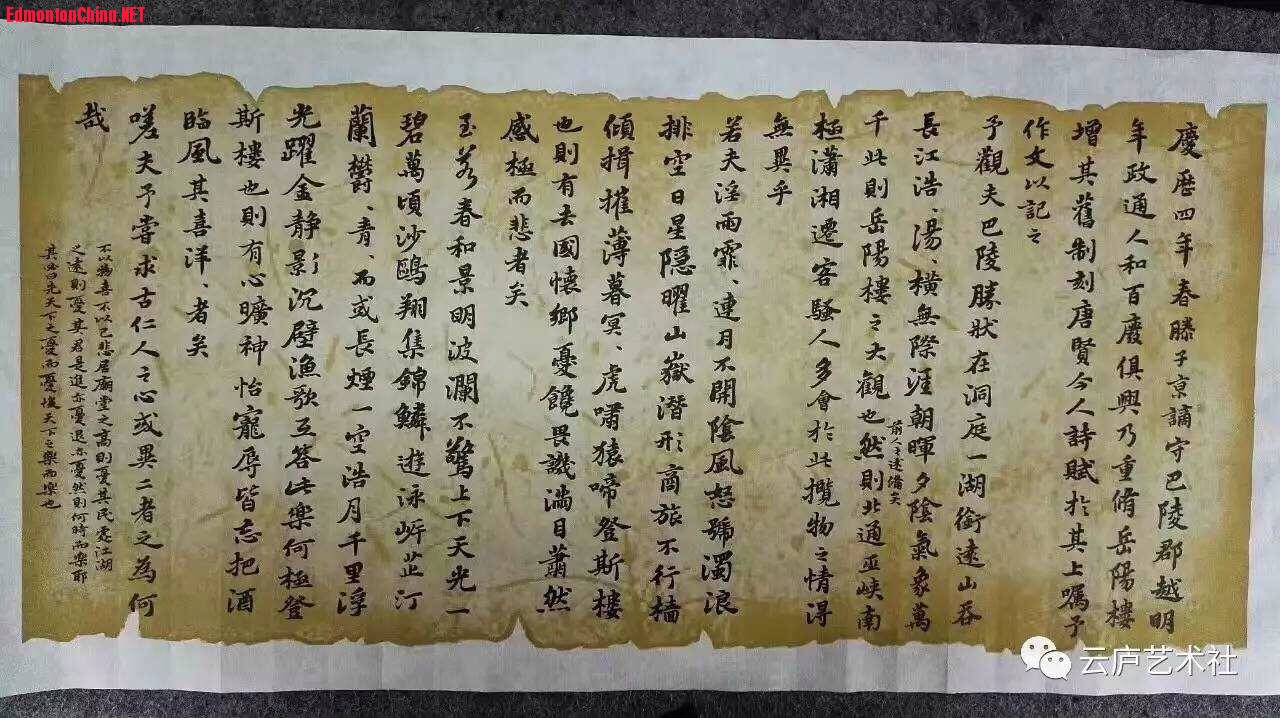 EdmontonChina.NET
慶曆四年春滕子京謫守巴陵郡越明
年政通人和百廢俱興乃重脩岳陽樓
增其舊制刻唐賢今人詩賦於其上囑予
作文以記之
予觀夫巴陵勝狀在洞庭一湖銜遠山吞
長江浩、湯、橫無際涯朝暉夕陰氣象萬
千此則岳陽樓之大觀也前人之述備矣然則北通巫峽南
極瀟湘遷客騷人多會於此攬物之情得
無異乎
若夫淫雨霏、連月不開陰風怒號濁浪
排空日星隱曜山嶽潛形商旅不行檣
傾揖摧薄暮冥、虎嘯猿啼登斯樓
也則有去國懷鄉憂饞畏譏滿目蕭然
感極而悲者矣
至若春和景明波瀾不驚上下天光一
碧萬頃沙鷗翔集錦鱗遊泳岸芷汀
蘭鬱、青、而或長煙一空浩月千里浮
光躍金静影沉壁漁歌互答此樂何極登
斯樓也則有心曠神怡寵辱皆忘把酒
臨風其喜洋、者矣
嗟夫予嘗求古仁人之心或異二者之為何
哉
不以物喜不以己悲居廟堂之高則憂其民處江湖
之遠則憂其君是進亦憂退亦憂然則何時而樂耶
其必曰先天下之憂而憂後天下之樂而樂也
云庐艺术社